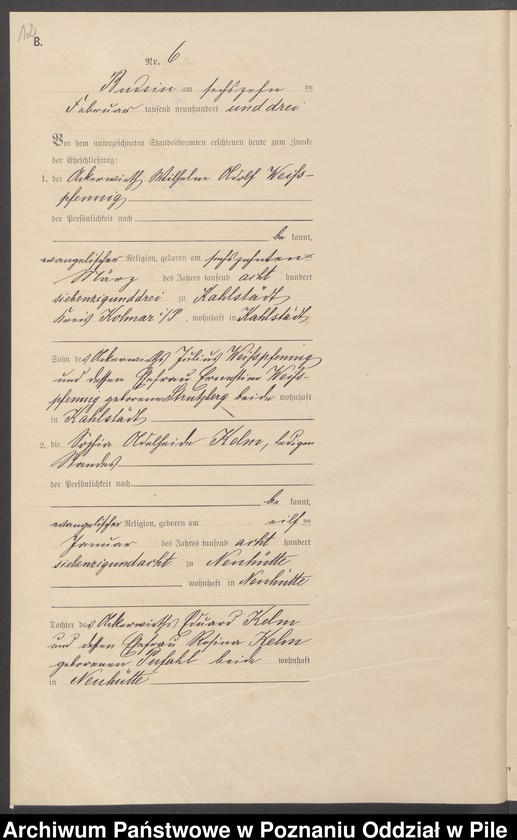 12
B.
Nr. 6
Budsin am sechszehn ten
Februar tausend neunhundert und drei
Vor dem unterzeichneten Standesbeamten erschienen heute zum Zwecke
der Eheschließung:
1. der Ackerwirth Wilhelm Adolf Weiss-
pfennig
der Persönlichkeit nach
be kannt,
evangelischer Religion, geboren am sechszehnten
März des Jahres tausend acht hundert
siebenzigunddrei zu Kahlstädt
Kreis Kolmar i/P. wohnhaft in Kahlstädt
Sohn des Ackerwirths Julius Weisspfennig
und dessen Ehefrau Ernestine Weiss-
pfennig geborenen Strutzberg beide wohnhaft
in Kahlstädt
2. die Sophia Adelheide Kelm, ledigen
Standes
der Persönlichkeit nach
be kannt,
evangelischer Religion, geboren am eilf ten
Januar des Jahres tausend acht hundert
siebenzigundacht zu Neuhütte
wohnhaft in Neuhütte
Tochter des Ackerwirths Eduard Kelm
und dessen Ehefrau Rosina Kelm
geborenen Pufahl beide wohnhaft
in Neuhütte
Archiwum Państwowe w Poznaniu Oddział w Pile